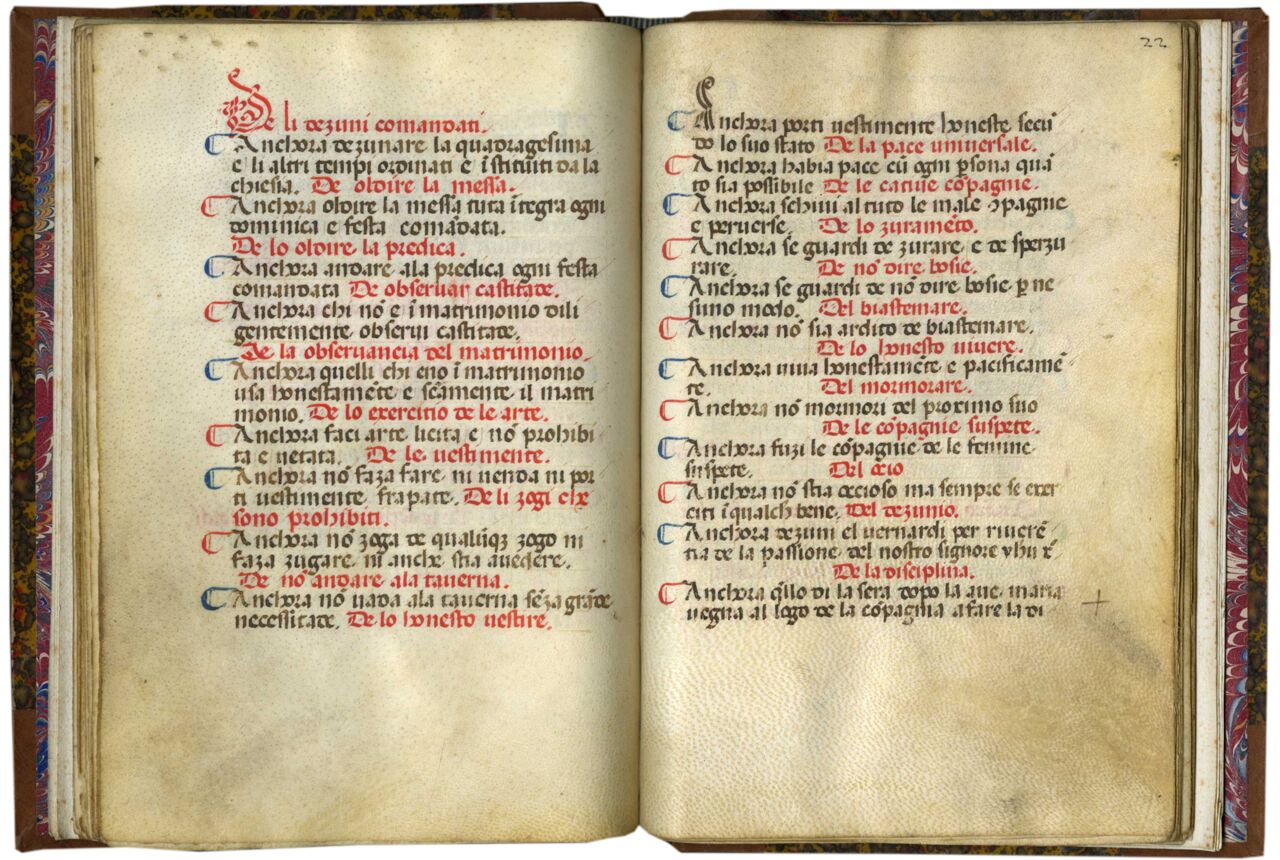 De li dezuni comandati.
Anchora dezunare la quadragesima
e li altri tempi ordinati e īstituiti da la
chiesia. De oldire la messa.
Anchora oldire la messa tuta ītegra ogni
dominica e festa comādata.
De lo oldire la predica.
Anchora andare ala predica ogni festa
comandata De observar castitade.
Anchora chi nō e ī matrimonio dili
gentemente observi castitate.
De la observancia del matrimonio.
Anchora quelli chi eno ī matrimonio
usa honestamēte e scāmente il matri
monio. De lo exercitio de le arte.
Anchora faci arte licita e nō prohibi
ta e vetata. De le vestimente.
Anchora nō faza fare ni venda ni por
ti vestimente frapate. De li zogi che
sono prohibiti.
Anchora nō zoga de qualūqz zogo ni
faza zugare, ni anche stia avedere.
De nō andare ala taverna.
Anchora nō vada ala taverna sēza grāde
necessitate. De lo honesto vestire.
22
Anchora porti vestimente honeste secū
do lo suo stato De la pace universale.
Anchora habia pace cū ogni p̄sona quā
to sia possibile De le cative cōpagnie.
Anchora schivi al tuto le male ꝯpagnie
e perverse. De lo zuramēto.
Anchora se guardi de zurare e de sperzu
rare. De nō dire bosie.
Anchora se guardi de nō dire bosie p̄ ne
suno modo. Del biastemare.
Anchora nō sia ardito de biastemare.
De lo honesto vivere.
Anchora viva honestamēte e pacificamē
te. Del mormorare.
Anchora nō mormori del proximo suo
De le cōpagnie suspete.
Anchora fuzi le cōpagnie de le femine
suspete. Del ocio
Anchora nō stia occioso ma sempre se exer
citi ī qualch bene. Del dezunio.
Anchora dezuni el vernardi per riverē
tia de la passione del nostro signore yhu x̄
De la disciplina.
Anchora q̄llo di la sera dopo la ave maria
vegna al logo de la cōpagnia a fare la di